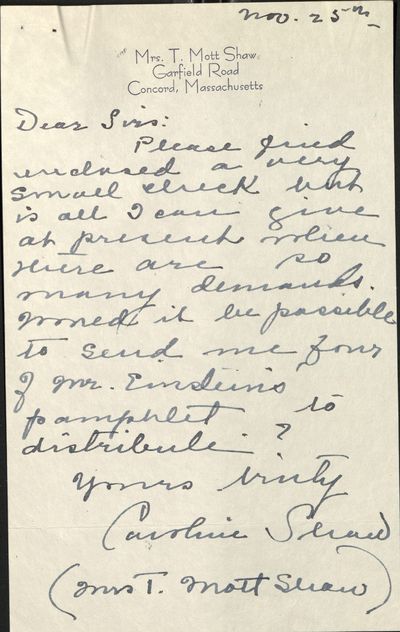 Nov. 25th
Mrs. T. Mott Shaw
Garfield Road
Concord, Massachusetts
Dear Sirs:
Please find
enclosed a very
small check but
is all I can give
at present when
there are so
many demands.
Would it be possible
to send me four
of Mr. Einsteins
pamphlet to
distribute?
Yours truly
Caroline Shaw
(Mrs T. Mott Shaw)